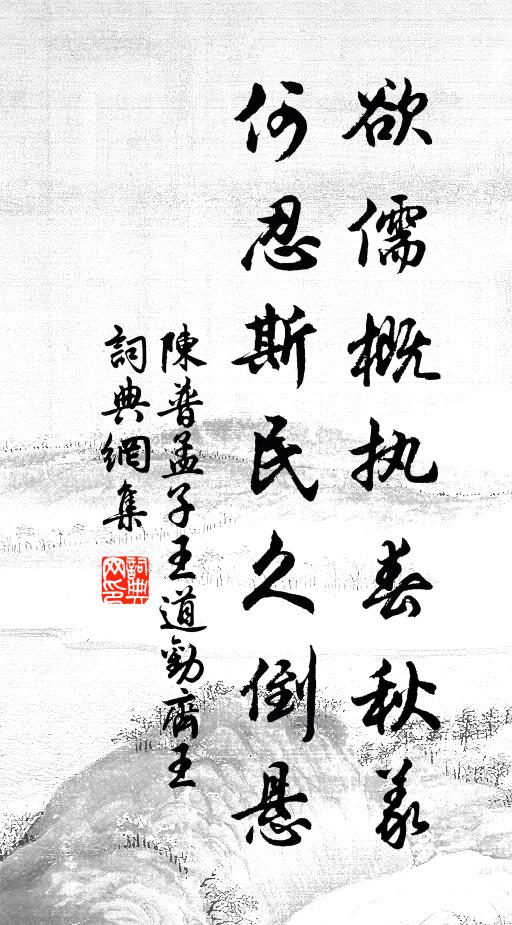 欲儒概执春秋義
何忍斯民久倒悬
陳普孟子王道勸齊王
詞典網集
詞典
网印